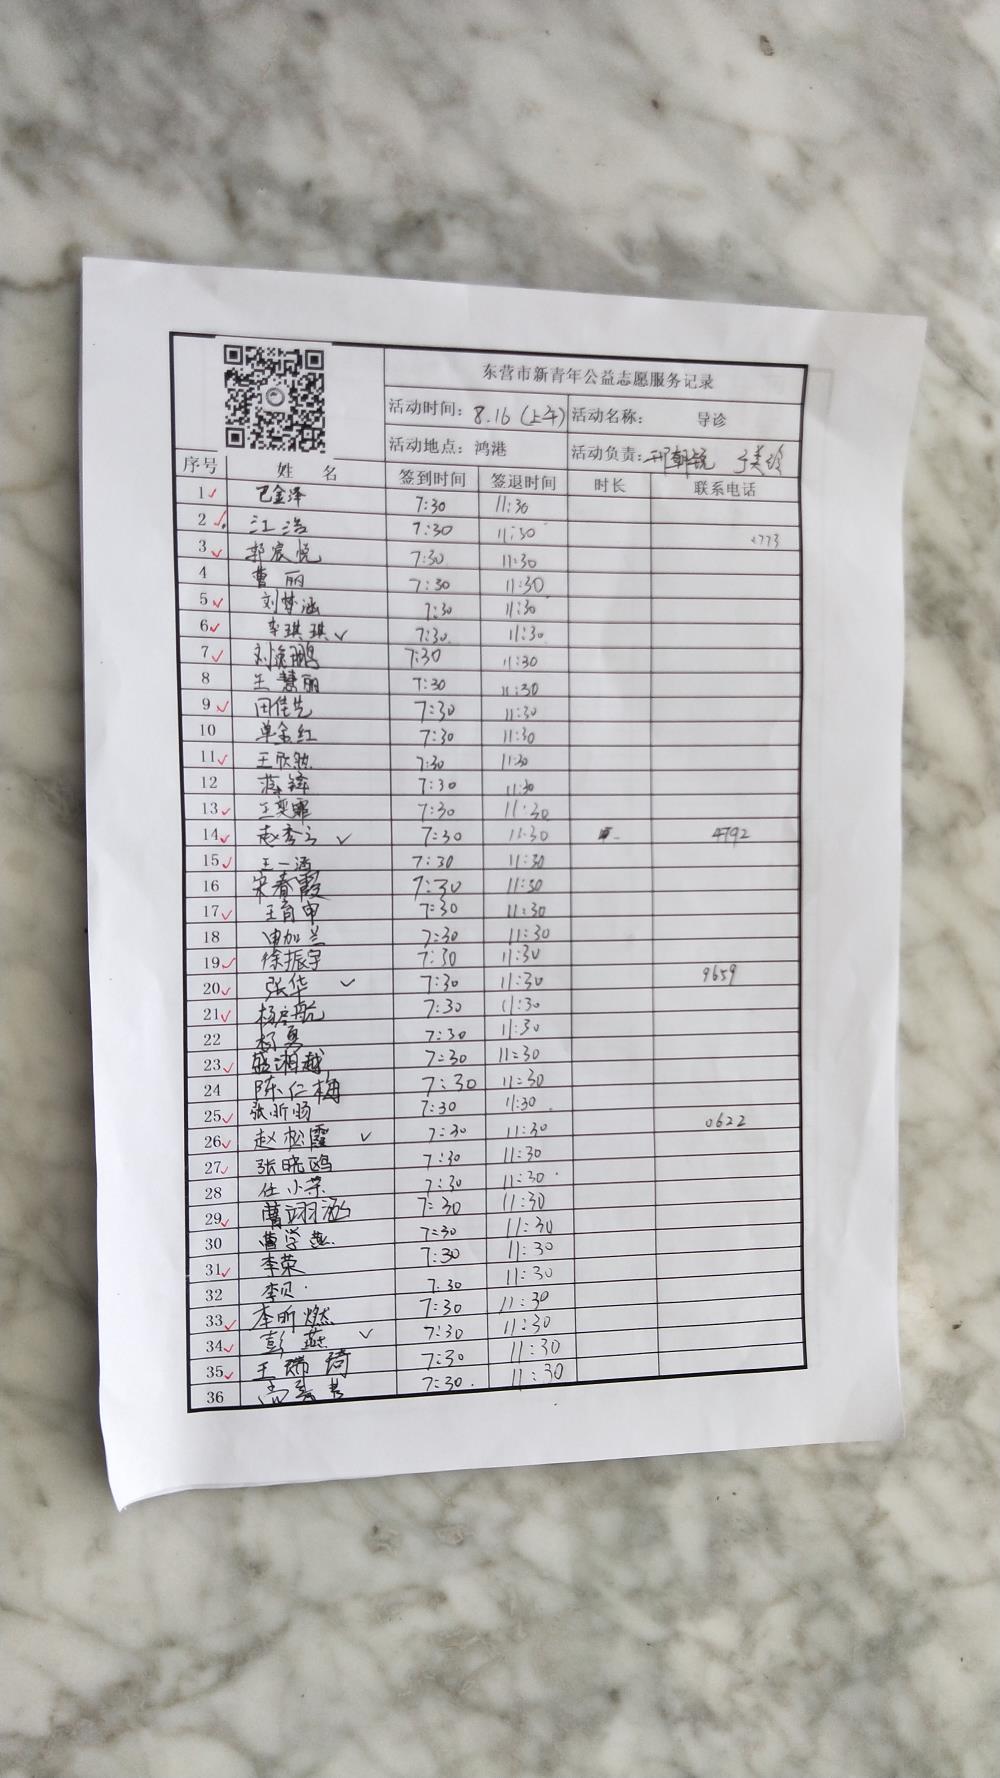 东营市新青年公益志愿服务记录
活动时间: 8.16 (上午) 活动名称: 导诊
活动地点: 鸿港 活动负责: 于美玲
序号 姓 名 签到时间 签退时间 时长 联系电话
1 巴金泽 7:30 11:30
2 江浩 7:30 11:30 0773
3 郭宸悦 7:30 11:30
4 曹丽 7:30 11:30
5 刘梦涵 7:30 11:30
6 李琪琪 7:30 11:30
7 刘逸鹏 7:30 11:30
8 王慧丽 7:30 11:30
9 田佳先 7:30 11:30
10 单金红 7:30 11:30
11 王欣勉 7:30 11:30
12 7:30 11:30
13 王奕霏 7:30 11:30
14 赵秀云 7:30 11:30 4792
15 王一涵 7:30 11:30
16 宋春霞 7:30 11:30
17 王育申 7:30 11:30
18 申加兰 7:30 11:30
19 徐振宇 7:30 11:30
20 张华 7:30 11:30 9659
21 杨启航 7:30 11:30
22 杨勇 7:30 11:30
23 盛湘越 7:30 11:30
24 陈仁梅 7:30 11:30
25 张昕旸 7:30 11:30
26 赵松霞 7:30 11:30 0622
27 张晓鸥 7:30 11:30
28 任小荣 7:30 11:30
29 曹翊涵 7:30 11:30
30 曹学燕 7:30 11:30
31 李荣 7:30 11:30
32 李贝 7:30 11:30
33 李昕燃 7:30 11:30
34 彭燕 7:30 11:30
35 王瑞琦 7:30 11:30
36 7:30 11:30